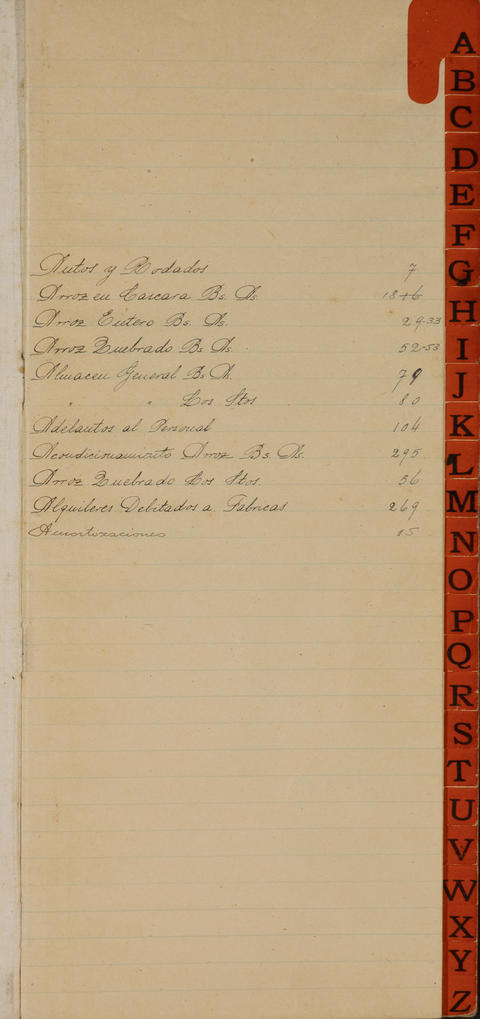 Autos y Rodados 7
Arroz en Cascara Bs. As. 18+6
Arroz Entero Bs. As. 29-33
Arroz Quebrado Bs As. 52-53
Almacen General Bs. As. 79
" " Los Stos 80
Adelantos al Personal 104
Acondicionamiento Arroz Bs. As. 295
Arroz Quebrado Los Stos. 56
Alquileres Debitados a Fabricas 269
Amortizaciones 15
A
B
C
D
E
F
G
H
I
J
K
L
M
N
O
P
Q
R
S
T
U
V
W
X
Y
Z